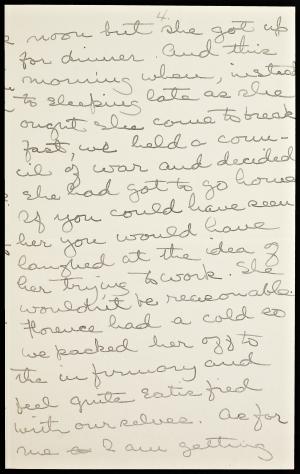 4.
noon but she got up
for dinner. And this
morning when, instead
to sleeping late as she
ought she come to break
fast, we held a coun-
cil of war and decided
she had got to go home
If you could have seen
her you would have
laughed at the idea of
her trying to work. She
wouldn't be reasonable.
Florence had a cold so
we packed her off to
the infirmary and
feel quite satisfied
with ourselves. As for
me I am getting